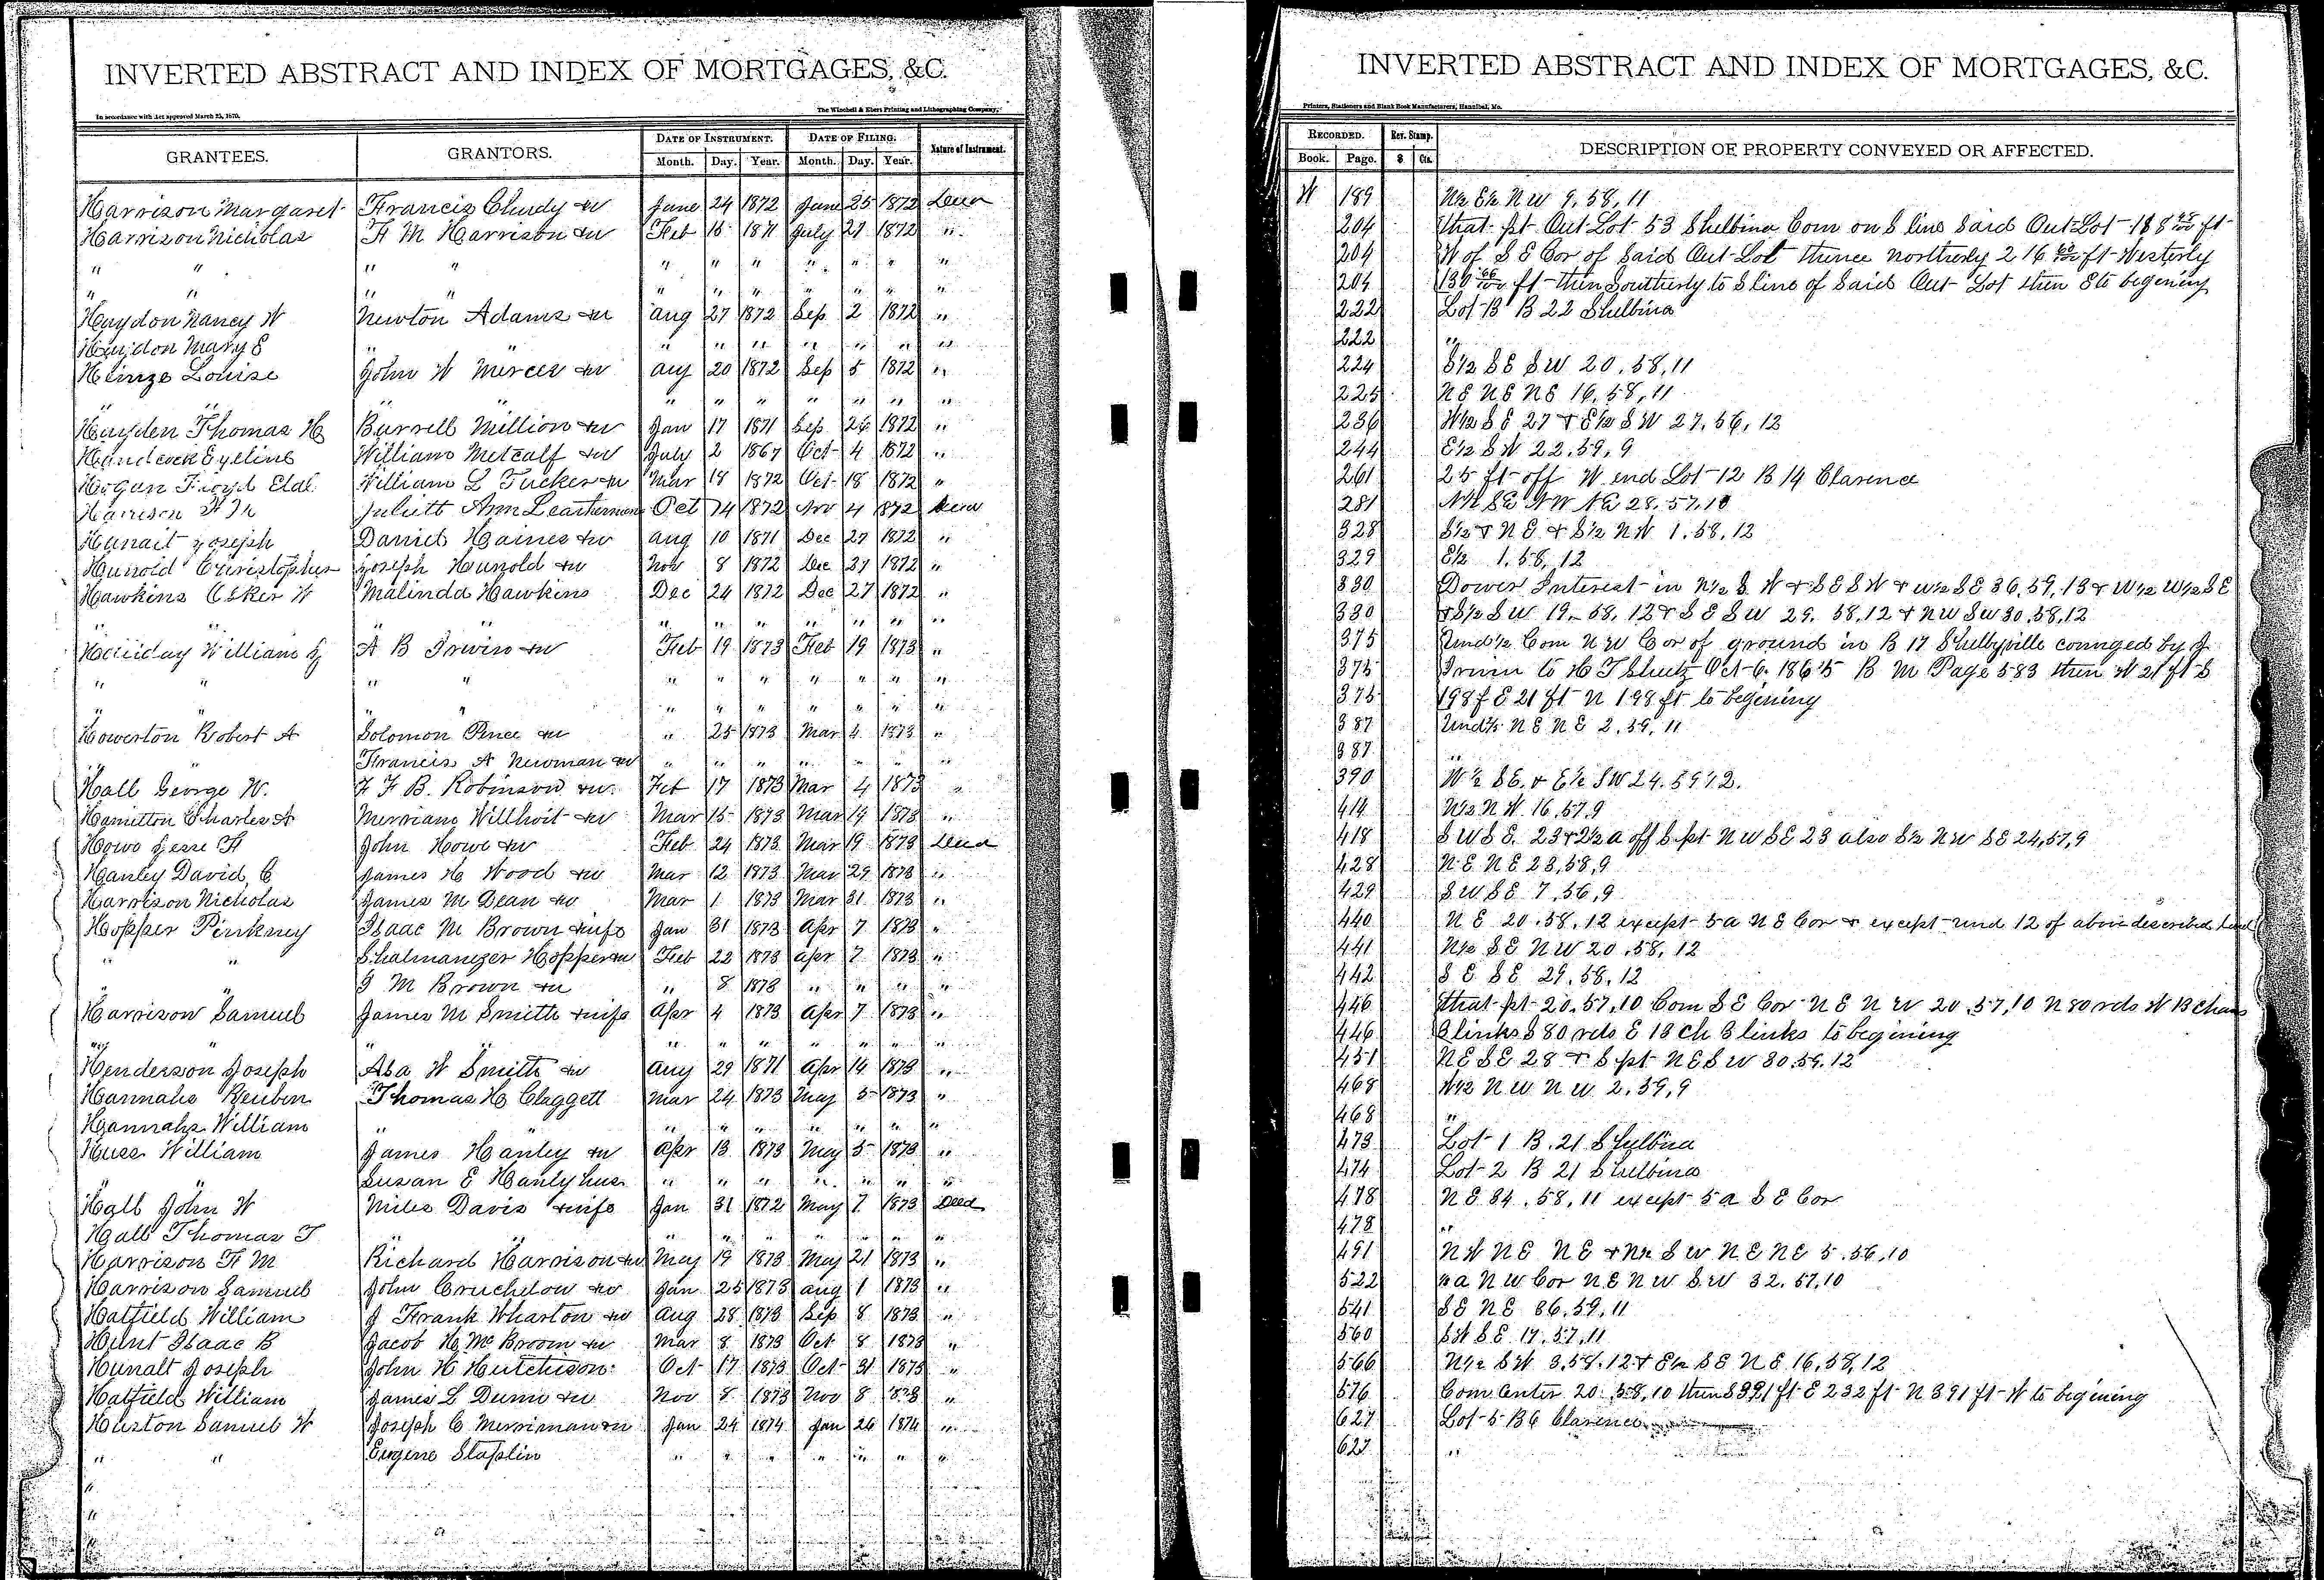 INVERTED ABSTRACT AND INDEX OF MORTGAGES, &C.
In accordance with Act approved March 25, 1870.
The Winchell & Ebert Printing and Lithographing Company,
GRANTEES. GRANTORS. DATE OF INSTRUMENT. DATE OF FILING. Nature of Instrument.
Month. Day. Year. Month. Day. Year.
Harrison Margaret Francis Chudy &w June 24 1872 June 25 1872 Deed
Harrison Nicholas F M Harrison &w Feb 15 1871 July 27 1872 "
" " " " " " " " " " "
" " " " " " " " " " "
Haydon Nancy W Newton Adams &w Aug 27 1872 Sep 2 1872 "
Haydon Mary E " " " " " " " " "
Heinze Louise John W Mercer &w Aug 20 1872 Sep 5 1872 "
" " " " " " " " " " "
Hayden Thomas H Burrell Million &w Jan 17 1871 Sep 26 1872 "
William Metcalf &w July 2 1867 Oct 4 1872 "
Hogan William L Tucker &w Mar 18 1872 Oct 18 1872 "
Harrison Juliett Ann Leatherman Oct 14 1872 Nov 4 1872 Deed
Hunalt Joseph Daniel Haines &w Aug 10 1871 Dec 27 1872 "
Hunold Christopher Joseph Hunold &w Nov 8 1872 Dec 27 1872 "
Hawkins Esker W Malinda Hawkins Dec 24 1872 Dec 27 1872 "
" " " " " " " " " " "
Halliday William J A B Irwin &w Feb 19 1873 Feb 19 1873 "
" " " " " " " " " " "
" " " " " " " " " " "
Howerton Robert A Solomon Pence &w " 25 1873 Mar 4 1873 "
" " Francis A Newman &w " " " " " " "
Hall George W. F F B. Robinson &w. Feb 17 1873 Mar 4 1873 "
Hamilton Charles A Merriam Willhoit &w Mar 15 1873 Mar 19 1873 "
Howe Jesse F John Howe &w Feb 24 1873 Mar 19 1873 Deed
Hanley David C James H Wood &w Mar 12 1873 Mar 29 1873 "
Harrison Nicholas James M Dean &w Mar 1 1873 Mar 31 1873 "
Hopper Pinkney Isaac M Brown &wife Jan 31 1873 Apr 7 1873 "
" " Shalmanezer Hopper &w Feb 22 1873 Apr 7 1873 "
" " I M Brown &w " 8 1873 " " " "
Harrison Samuel James M Smith &wife Apr 4 1873 Apr 7 1873 "
" " " " " " " " " " "
Henderson Joseph Asa W Smith &w Aug 29 1871 Apr 14 1873 "
Hannahs Reuben Thomas H Claggett Mar 24 1873 May 5 1873 "
Hannahs William " " " " " " " " "
Huss William James Hanley &w Apr 13 1873 May 5 1873 "
" " Susan E Hanly hus " " " " " " "
Hall John W Miles Davis &wife Jan 31 1872 May 7 1873 Deed
Hall Thomas T " " " " " " " " "
Harrison F M Richard Harrison &w May 19 1873 May 21 1873 "
Harrison Samuel John Cruchelow &w Jan 25 1873 Aug 1 1873 "
Hatfield William J Frank Wharton &w Aug 28 1873 Sep 8 1873 "
Hunt Isaac B Jacob H McBroom &w Mar 8 1873 Oct 8 1873 "
Hunalt Joseph John H Hutchison Oct 17 1873 Oct 31 1873 "
Hatfield William James L Dunn &w Nov 8 1873 Nov 8 1873 "
Huston Samuel W Joseph C Merriman &w Jan 24 1874 Jan 26 1874 "
" " Eugene Staplin " " " " " " "
INVERTED ABSTRACT AND INDEX OF MORTGAGES, &C.
Printers, Stationers and Blank Book Manufacturers, Hannibal, Mo.
RECORDED. Rev. Stamp. DESCRIPTION OF PROPERTY CONVEYED OR AFFECTED.
Book. Page. $ Cts.
W 189 N½ E½ N W 9, 58, 11
204 that pt Out Lot 53 Shelbina Com on S line Said Out Lot 188 ft
204 W of S E Cor of Said Out Lot thence northerly 216 ft Westerly
204 130 ft then Southerly to S line of Said Out Lot then E to begening
222 Lot 13 B 22 Shelbina
222 "
224 S½ SE SW 20, 58, 11
225 NE NE NE 16, 58, 11
236 W½ SE 27 & E½ SW 27, 56, 12
244 E½ SW 22, 59, 9
261 25 ft off W end Lot 12 B 14 Clarence
281 SE NW NE 28, 57, 10
328 S½ & NE & S½ NW 1, 58, 12
329 E½ 1, 58, 12
330 Dower Interest in N½ S W & SE SW & W½ SE 36, 59, 13 & W½ W½ SE
330 & S½ SW 19, 58, 12 & SE SW 29, 58, 12 & NW SW 30, 58, 12
375 Und½ Com N W Cor of ground in B 17 Shelbyville conveyed by J
375 Irwin to H T Sheetz Oct 6, 1865 B M Page 583 then W 21 ft S
375 198 f E 21 ft N 198 ft to begening
387 Und½ NE NE 2, 59, 11
387 "
390 W½ SE. & E½ SW 24. 59 12.
414 N½ N W. 16, 57, 9
418 SW SE. 23 & 2½ a off S pt NW SE 23 also S½ NW SE 24, 57, 9
428 NE NE 23, 58, 9
429 SW SE 7, 56, 9
440 N E 20, 58, 12 except 5 a N E Cor & except und 12 of above described land
441 N½ SE NW 20, 58, 12
442 SE SE 29, 58, 12
446 that pt 20, 57, 10 Com SE Cor NE NW 20, 57, 10 N 80 rds W 13 Chains
446 3 links S 80 rds E 13 ch 3 links to begining
451 NE SE 28 & S pt NE SW 30, 59, 12
468 W½ NW NW 2, 59, 9
468 "
473 Lot 1 B. 21 Shelbina
474 Lot 2 B 21 Shelbina
478 NE 34, 58, 11 except 5 a SE Cor
478 "
491 NW NE NE & N½ SW NE NE 5, 56, 10
522 a NW Cor NE NW SW 32, 57, 10
541 SE NE 36, 59, 11
560 SW SE 17, 57, 11
566 N½ SW 3, 58, 12 & E½ SE NE 16, 58, 12
576 Com Center 20, 58, 10 then S 391 ft E 232 ft N 391 ft W to begining
627 Lot 5 B 6 Clarence
627 "